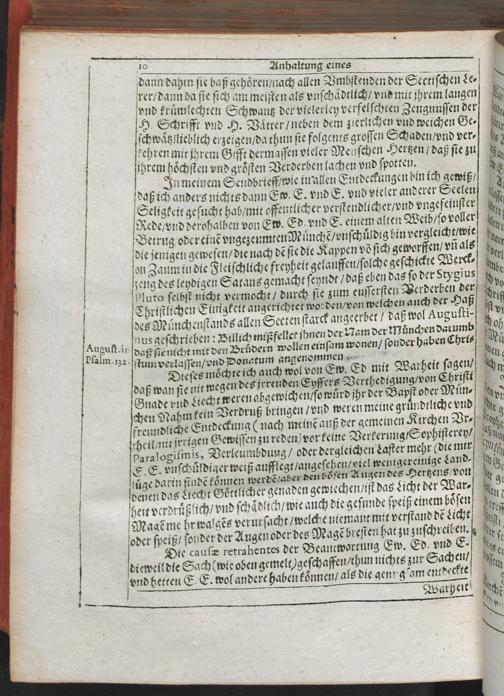 10 Anhaltung eines
dann dahin sie baß gehören/nach allen Vmbstenden der Sectischen Le-
rer/dann da sie sich am meisten als vnschädtlich/ vnd mit ihrem langen
vnd krümlechten Schwantz der vielerley verfelschten Zeugnussen der
H. Schrifft vnd H. Vätter/neben dem zierlichen vnd weichen Ge-
schwätz/lieblich erzeigen/da thun sie folgents grossen Schaden/vnd ver-
kehren mit jhrem Gifft dermassen vieler Menschen Hertzen/ daß sie zu
jhrem höchsten vnd grösten Verderben lachen vnd spotten.
In meinem Sendbrieff/wie in allen Entdeckungen bin ich gewiß/
daß ich anders nichts dann Ew. E. vnd E. vnd vieler anderer Seelen
Seligkeit gesucht hab/mit offentlicher verstendlicher/vnd vngefeinster
Rede/vnd derohalben von Ew. Ed. vnd E. einem alten Weib/so voller
Betrug oder einē vngezeumten Münchē/vnschüldig bin vergleicht/wie
die jenigen gewesen/die nach dē sie die Kappen vō sich geworffen/vn̄ als
on Zaum in die Fleischliche freyheit gelauffen/solche geschickte Werck-
zeug des leydigen Satans gemacht seyndt/ daß eben das so der Stygius
Pluto selbst nicht vermocht/ durch sie zum eussersten Verderben der
Christlichen Einigkeit angerichtet worden/von welchen auch der Haß
des Münchenstands allen Secten starck angeerbet/ daß wol Augusti-
nus geschrieben: Billich mißfellet jhnen der Nam der München darumb
August. in
Psalm. 132.
daß sie nicht mit den Brüdern wollen einsam wonen/ sonder haben Chri-
stum verlassen/vnd Donatum angenommen.
Dieses möchte ich auch wol von Ew. Ed mit Warheit sagen/
daß wan sie nit wegen des jrrenden Eyffers Verthedigung/von Christi
Gnade vnd Liecht weren abgewichen/so würd jhr der Bapst oder Mün-
chen Nahm kein Verdruß bringen / vnd weren meine gründtliche vnd
freundliche Entdeckung ( nach meinē auß der gemeinen Kirchen Vr-
theil/nit jrrigen Gewissen zu reden) vor keine Verkerung/Sophisterey/
Paralogismis, Verleumbdung/ oder dergleichen Laster mehr (die mir
E. E. vnschüldiger weiß aufflegt/angesehen/viel wenigereinige Land-
lüge darin findē können werdē/aber den bösen Augen des Hertzens/von
denen das Liecht Göttlicher genaden gewiechen/ist das Licht der War-
heit verdrüßlich/vnd schädlich/wie auch die gesunde speiß einem bösen
Magē me hr walgēs verursacht/welche niemant mit verstand dē Licht
oder speiß/ sonder der Augen oder des Magē bresten hat zu zuschreiben.
Die causæ retrahentes der Beantwortung Ew. Ed. vnd E.
dieweil die Sach (wie oben gemelt) geschaffen/thun nichts zur Sachen/
vnd hetten E. E. wol andere haben können/ als die entdeckte
Warheit